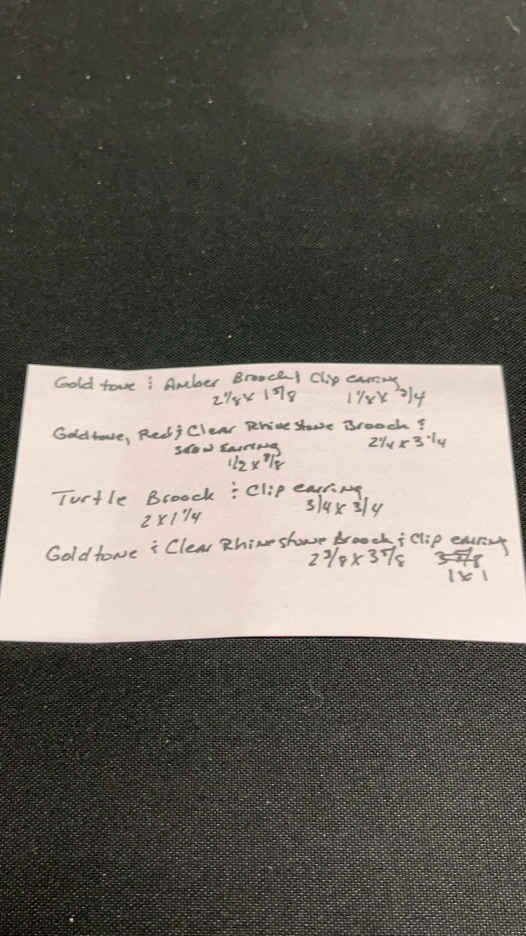 Gold tone & Amber Brooch & Clip earring
2 1/8 x 1 5/8 1 1/8 x 3/4
Goldtone, Red & Clear Rhinestone Brooch &
screw earring 2 1/4 x 3 1/4
1/2 x 7/8
Turtle Brooch & Clip earring
2 x 1 1/4 3/4 x 3/4
Goldtone & Clear Rhinestone Brooch & Clip earring
2 3/8 x 3 5/8
1 x 1